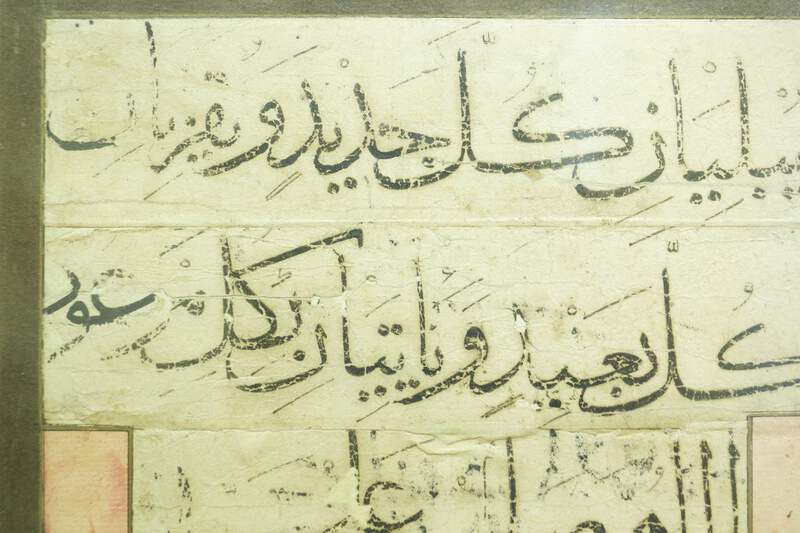 يبليان كل جديد ويقربان
كل بعيد ويأتيان بكل موعود